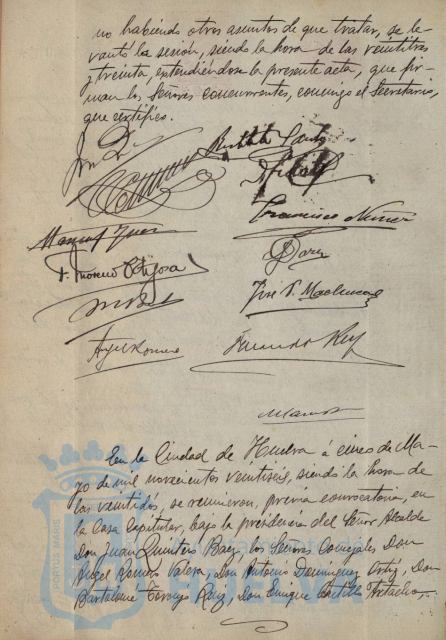 no habiendo otros asuntos de que tratar, se le-
vantó la sesión, siendo la hora de las veintitres
y treinta, extendiéndose la presente acta, que fir-
man los Señores concurrentes, conmigo el Secretario,
que certifico.
Francisco Núñez
Manuel
F. Moreno Ortijosa
José P. Machuca
Angel Romero
Fernando Rey
En la Ciudad de Huelva á cinco de Ma-
yo de mil novecientos veintiseis, siendo la hora de
las veintidós, se reunieron, previa convocatoria, en
la Casa Capitular, bajo la presidencia del Señor Alcalde
Don Juan Quintero Baez, los Señores Concejales Don
Angel Romero Valera, Don Antonio Dominguez Ortiz, Don
Bartolome Ruiz, Don Enrique Castillo
PORTUS MARIS
Ayuntamiento de
HUELVA